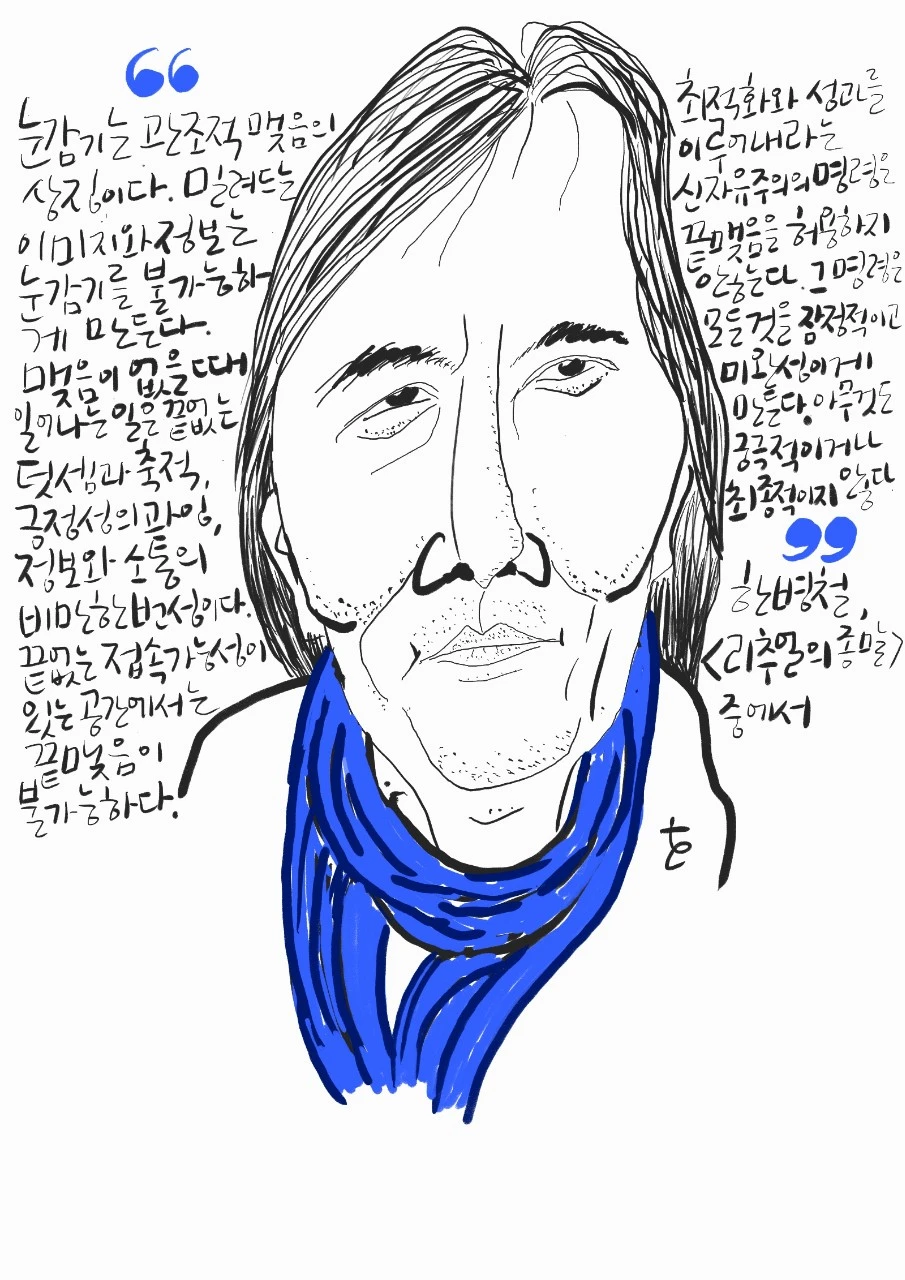 “
눈감기는 관조적 맺음의
상징이다. 밀려드는
이미지와 정보는
눈감기를 불가능하
게 만든다.
맺음이 없을 때
일어나는 일은 끝없는
덧셈과 축적,
긍정성의 과잉,
정보와 소통의
비만한 번성이다.
끝없는 접속가능성이
있는 공간에서는
끝맺음이
불가능하다.
최적화와 성과를
이루어내라는
신자유주의의 명령은
끝맺음을 허용하지
않는다. 그 명령은
모든 것을 잠정적이고
미완성이게
만든다. 아무것도
궁극적이거나
최종적이지 않다
”
한병철,
<리추얼의 종말>
중에서